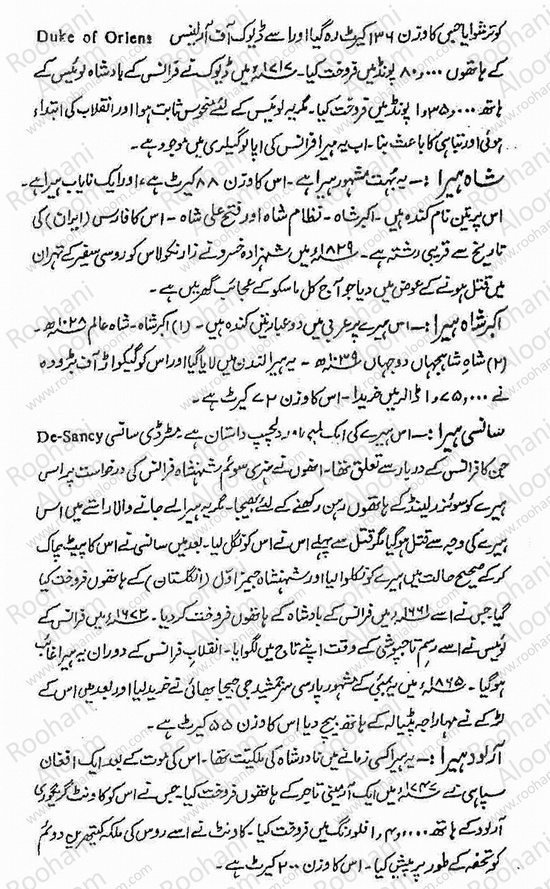 کو ترشوایا جس کا وزن ۱۳۶ کیرٹ رہ گیا اور اسے ڈیوک آف آرلینس Duke of Oriens
کے ہاتھوں ۸۰,۰۰۰ پونڈ میں فروخت کیا۔ ۱۷۱۷ء میں ڈیوک نے فرانس کے بادشاہ لوئیس کے
ہاتھ ۱,۳۵,۰۰۰ پونڈ میں فروخت کیا۔ مگر یہ لوئیس کے لئے منحوس ثابت ہوا اور انقلاب کی ابتداء
ہوئی اور تباہی کا باعث بنا۔ اب یہ ہیرا فرانس کی اپالو گیلری میں موجود ہے۔
شاہ ہیرا :۔ یہ بہت مشہور ہیرا ہے۔ اس کا وزن ۸۸ کیرٹ ہے، اور ایک نایاب ہیرا ہے۔
اس پر تین نام کندہ ہیں۔ اکبر شاہ۔ نظام شاہ اور فتح علی شاہ۔ اس کا فارس (ایران) کی
تاریخ سے قریبی رشتہ ہے۔ ۱۸۲۹ء میں شہزادہ خسرو نے زار نکولاس کو روسی سفیر کے تہران
میں قتل ہونے کے عوض میں دیا جو آج کل ماسکو کے عجائب گھر میں ہے۔
اکبر شاہ ہیرا :۔ اس ہیرے پر عربی میں دو عبارتیں کندہ ہیں۔ (۱) اکبر شاہ۔ شاہ عالم ۱۰۲۸ھ۔
(۲) شاہِ شاہجہاں دو جہاں ۱۰۳۹ھ۔ یہ ہیرا لندن میں لایا گیا اور اس کو گیکواڑ آف بڑودہ
نے ۱,۷۵,۰۰۰ ڈالر میں خریدا۔ اس کا وزن ۷۲ کیرٹ ہے۔
سانسی ہیرا :۔ اس ہیرے کی ایک لمبی اور دلچسپ داستان ہے مسٹر ڈی سانسی De-Sancy
جن کا فرانس کے دربار سے تعلق تھا۔ انھوں نے ہنری سوئم شہنشاہ فرانس کی درخواست پر اس
ہیرے کو سوئزرلینڈ کے ہاتھوں رہن رکھنے کے لئے بھیجا۔ مگر یہ ہیرا لے جانے والا راستے میں اس
ہیرے کی وجہ سے قتل ہوگیا مگر قتل سے پہلے اس نے اس کو نگل لیا۔ بعد میں سانسی نے اس کا پیٹ چاک
کر کے صحیح حالت میں ہیرے کو نکلوا لیا اور شہنشاہ جیمز اوّل (انگلستان) کے ہاتھوں فروخت کیا
گیا جس نے اسے ۱۶۶۱ء میں فرانس کے بادشاہ کے ہاتھوں فروخت کر دیا۔ ۱۶۷۲ء میں فرانس کے
لوئیس نے اسے رسم تاجپوشی کے وقت اپنے تاج میں لگوایا۔ انقلاب فرانس کے دوران یہ ہیرا غائب
ہوگیا۔ ۱۸۶۵ء میں بمبئی کے مشہور پارسی سر جمشید جی جیجا بھائی نے خرید لیا اور بعد میں اس کے
لڑکے نے مہاراجہ پٹیالہ کے ہاتھ بیچ دیا اس کا وزن ۵۵ کیرٹ ہے۔
آرلود ہیرا :۔ یہ ہیرا کسی زمانے میں نادر شاہ کی ملکیت تھا۔ اس کی موت کے بعد ایک افغان
سپاہی نے ۱۷۴۷ء میں ایک آرمینی تاجر کے ہاتھوں فروخت کیا۔ جس نے اس کو کاونٹ گریگوری
آرلود کے ہاتھ ۱,۴۰,۰۰۰ فلورنگ میں فروخت کیا۔ کاونٹ نے اسے روس کی ملکہ کیتھرین دوئم
کو تحفہ کے طور پر پیش کیا۔ اس کا وزن ۲۰۰ کیرٹ ہے۔